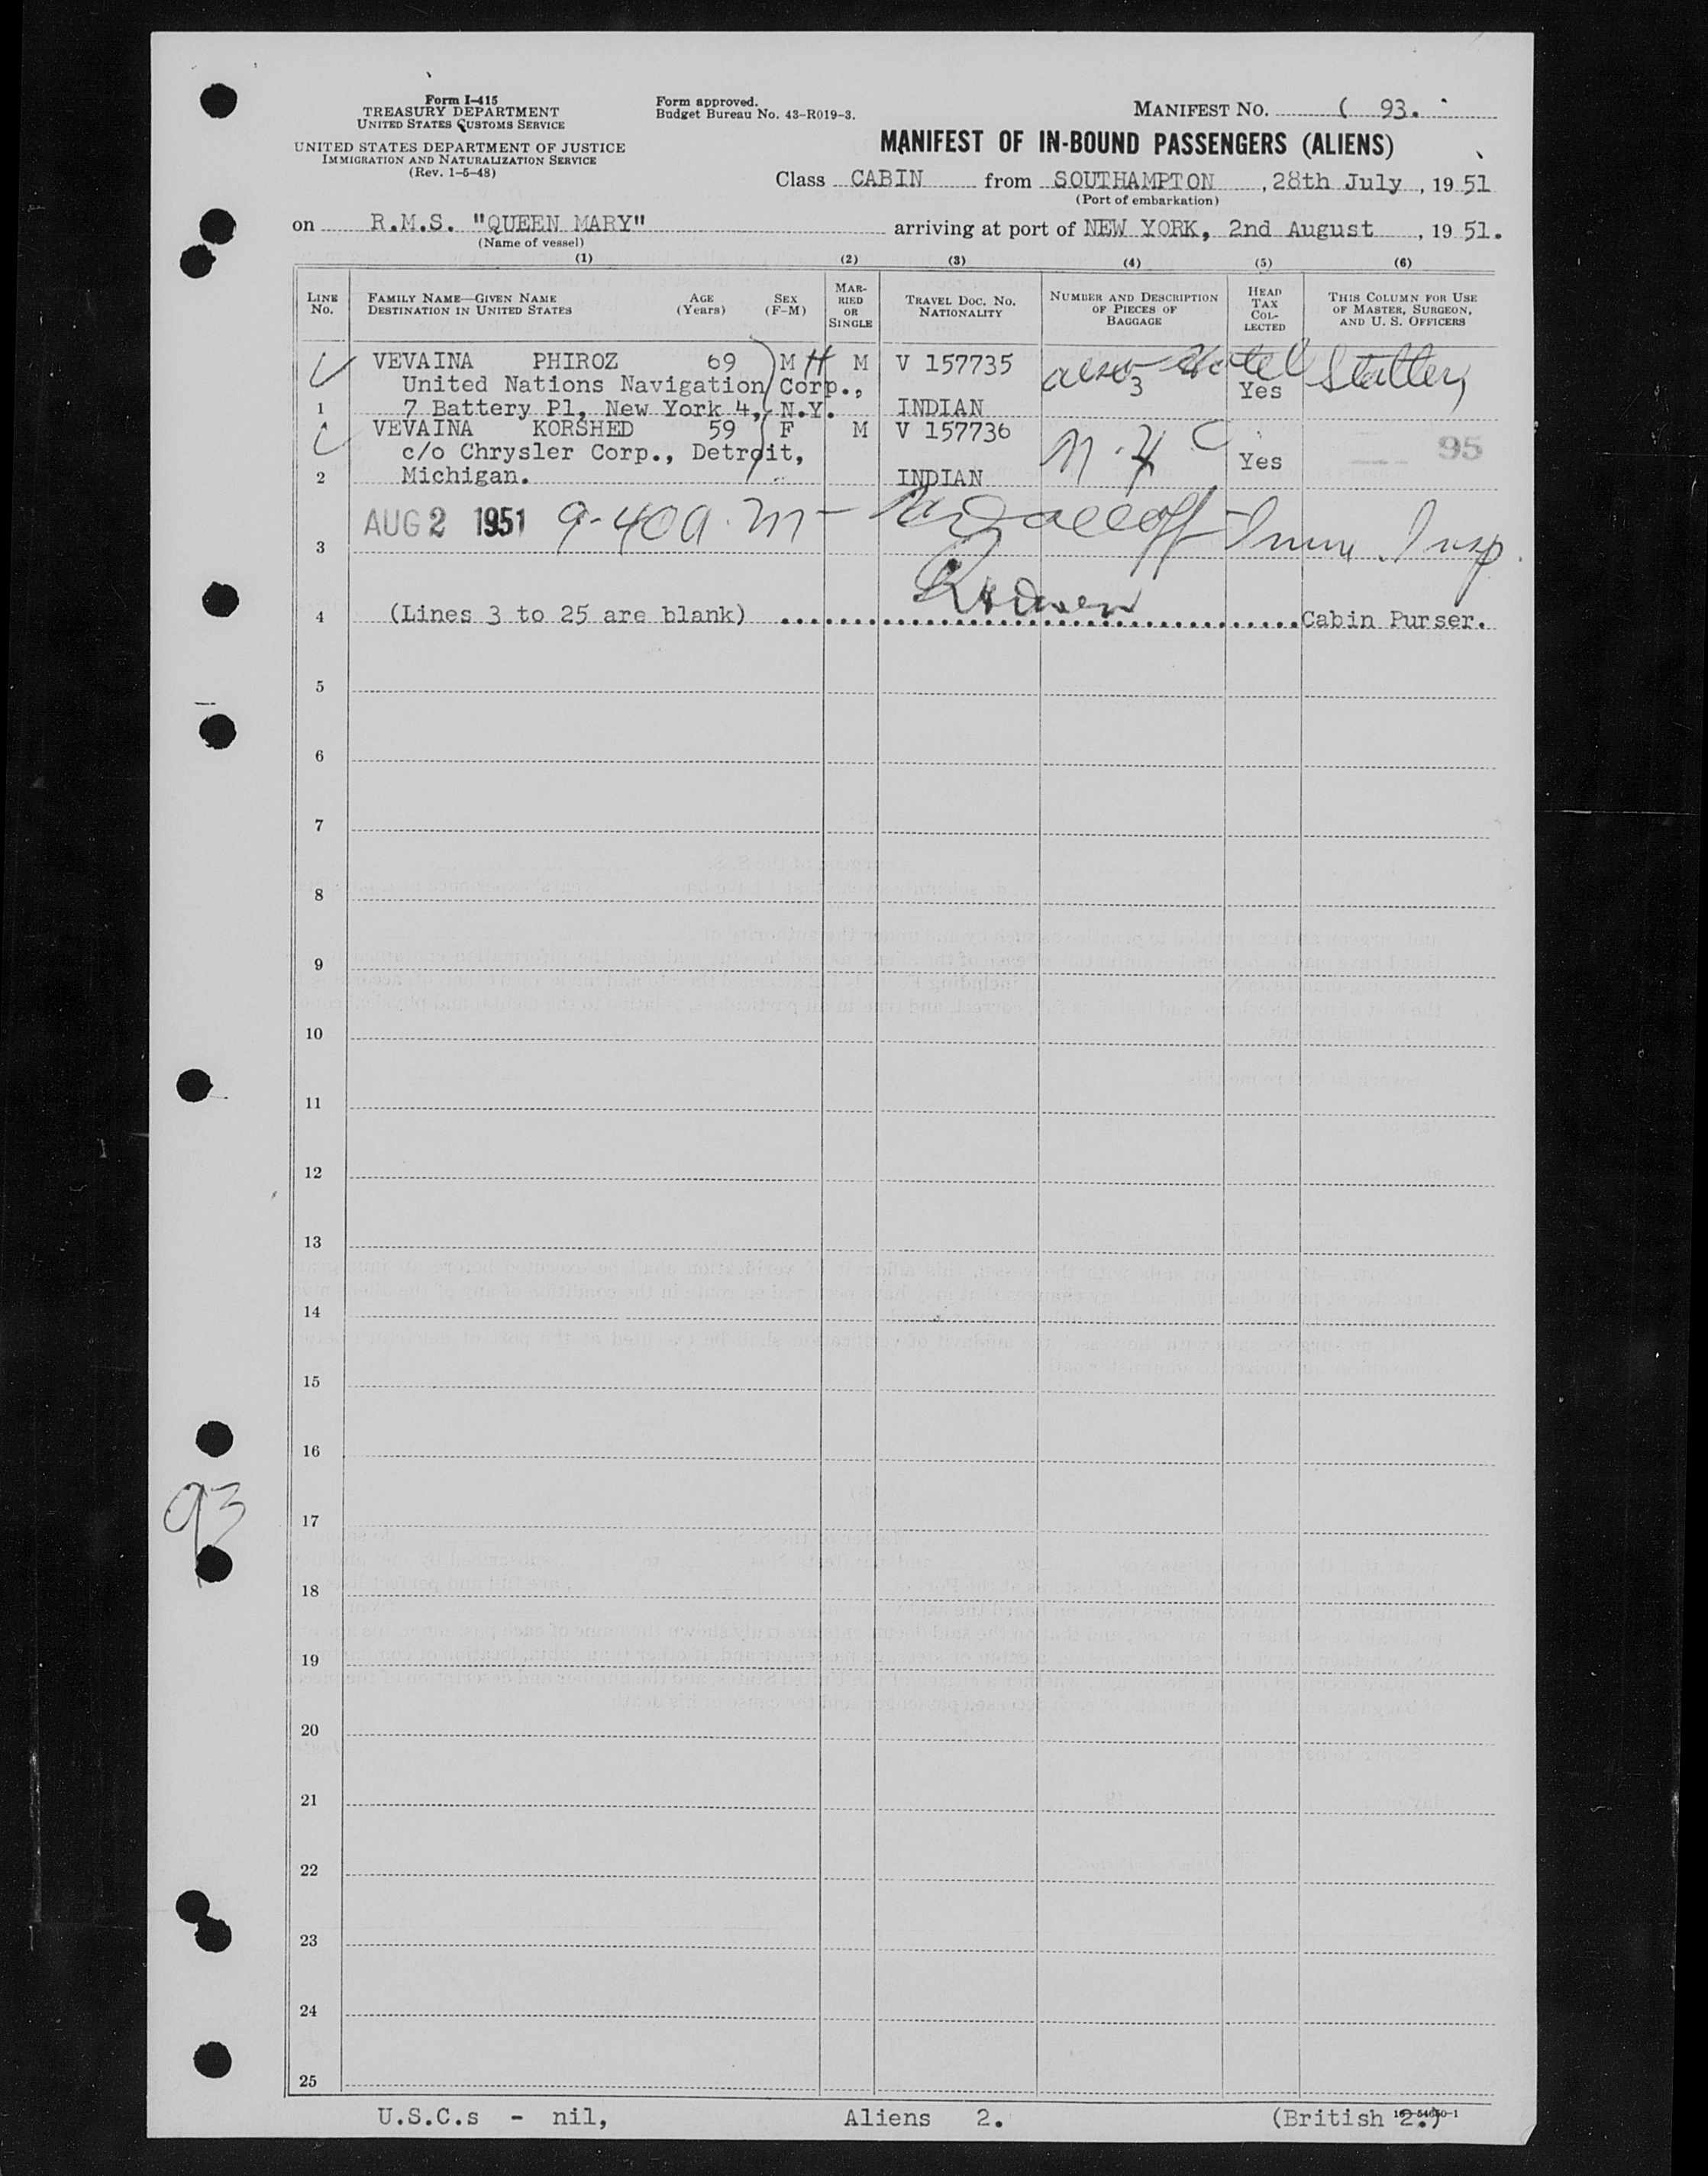 Form I-415
TREASURY DEPARTMENT
UNITED STATES CUSTOMS SERVICE
UNITED STATES DEPARTMENT OF JUSTICE
IMMIGRATION AND NATURALIZATION SERVICE
(Rev. 1-5-48)
Form approved.
Budget Bureau No. 43-R019-3.
MANIFEST NO. ( 93.
MANIFEST OF IN-BOUND PASSENGERS (ALIENS)
Class CABIN from SOUTHAMPTON, 28th July, 19 51
(Port of embarkation)
on R.M.S. "QUEEN MARY" arriving at port of NEW YORK, 2nd August, 19 51.
(Name of vessel)
(1) (2) (3) (4) (5) (6)
LINE No. FAMILY NAME—GIVEN NAME DESTINATION IN UNITED STATES AGE (Years) SEX (F-M) MARRIED OR SINGLE TRAVEL DOC. NO. NATIONALITY NUMBER AND DESCRIPTION OF PIECES OF BAGGAGE HEAD TAX COLLECTED THIS COLUMN FOR USE OF MASTER, SURGEON, AND U. S. OFFICERS
VEVAINA PHIROZ 69 M H M V 157735 also Hotel Statler,
United Nations Navigation Corp., 3 Yes
1 7 Battery Pl, New York 4, N.Y. INDIAN
VEVAINA KORSHED 59 F M V 157736 N.Y C 95
c/o Chrysler Corp., Detroit, Yes
2 Michigan. INDIAN
AUG 2 1951 9-40 a.m - Imm. Insp.
3
4 (Lines 3 to 25 are blank) Cabin Purser.
5
6
7
8
9
10
11
12
13
14
15
16
93
17
18
19
20
21
22
23
24
25
U.S.C.s - nil, Aliens 2. (British 2.)